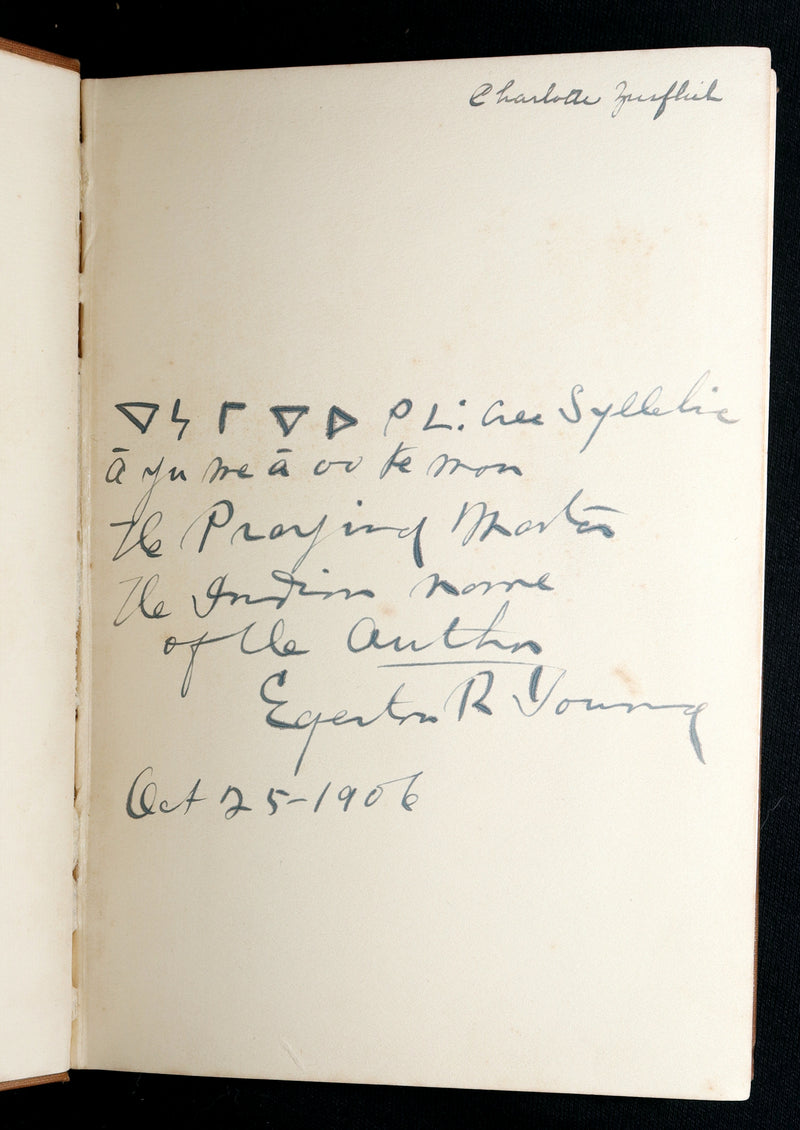 Charlotte
ᐁ ᔭ ᒥ ᐁ ᐅ ᑭ ᒪ: Cree Syllebic
ā yu me ā oo ke mon
The Praying Master
The Indian name
of the Author
Egerton R Young
Oct 25-1906